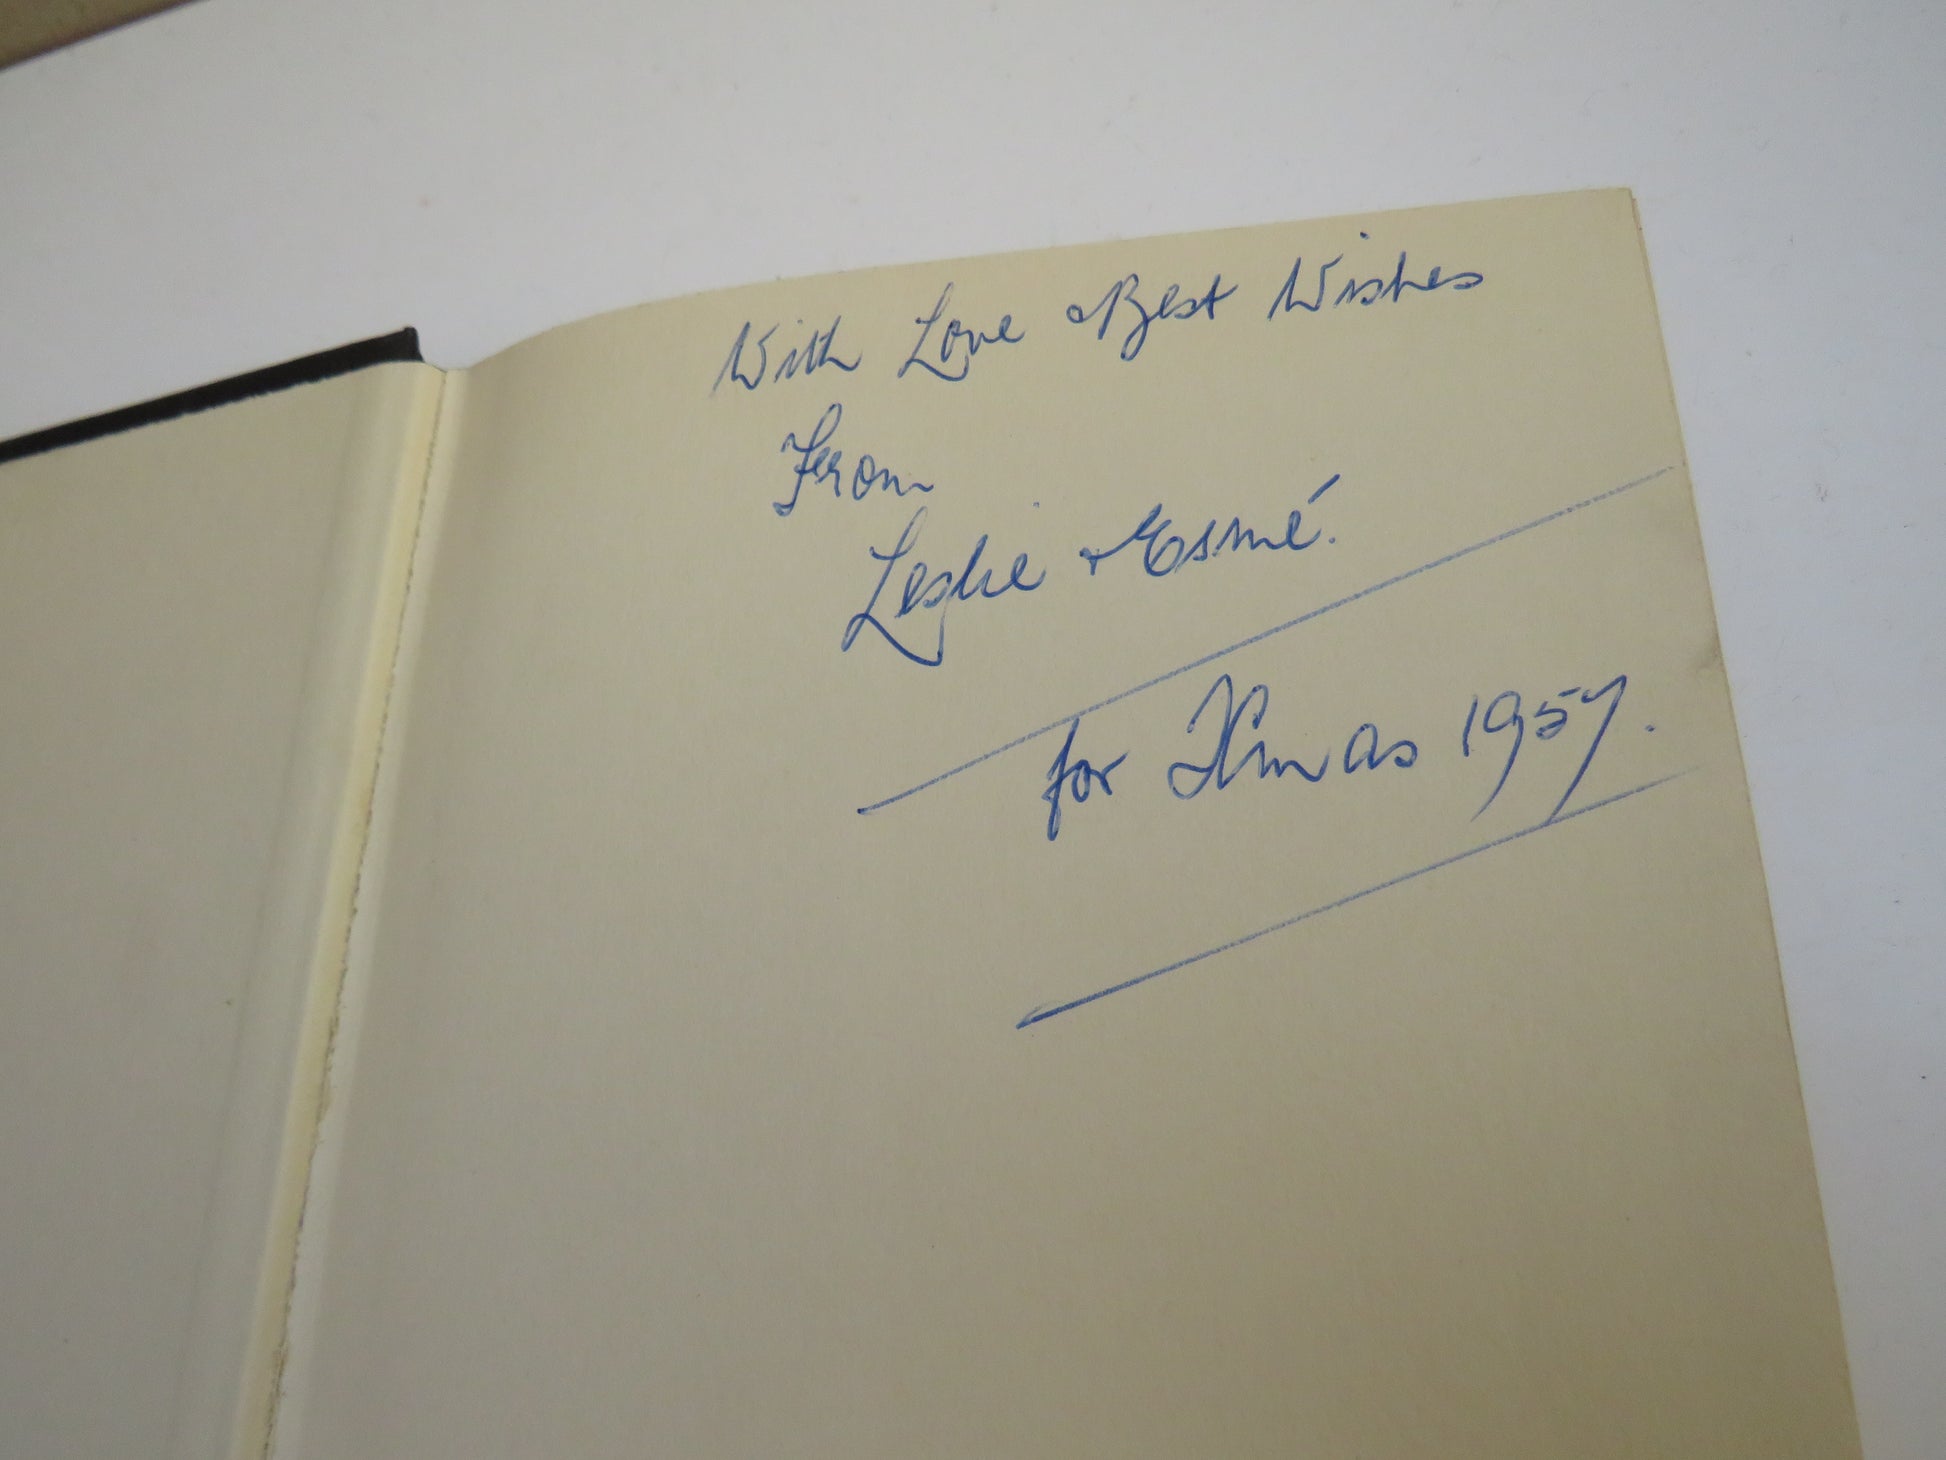 With Love & Best Wishes
From
Leslie & Esmé.
for Xmas 1957.